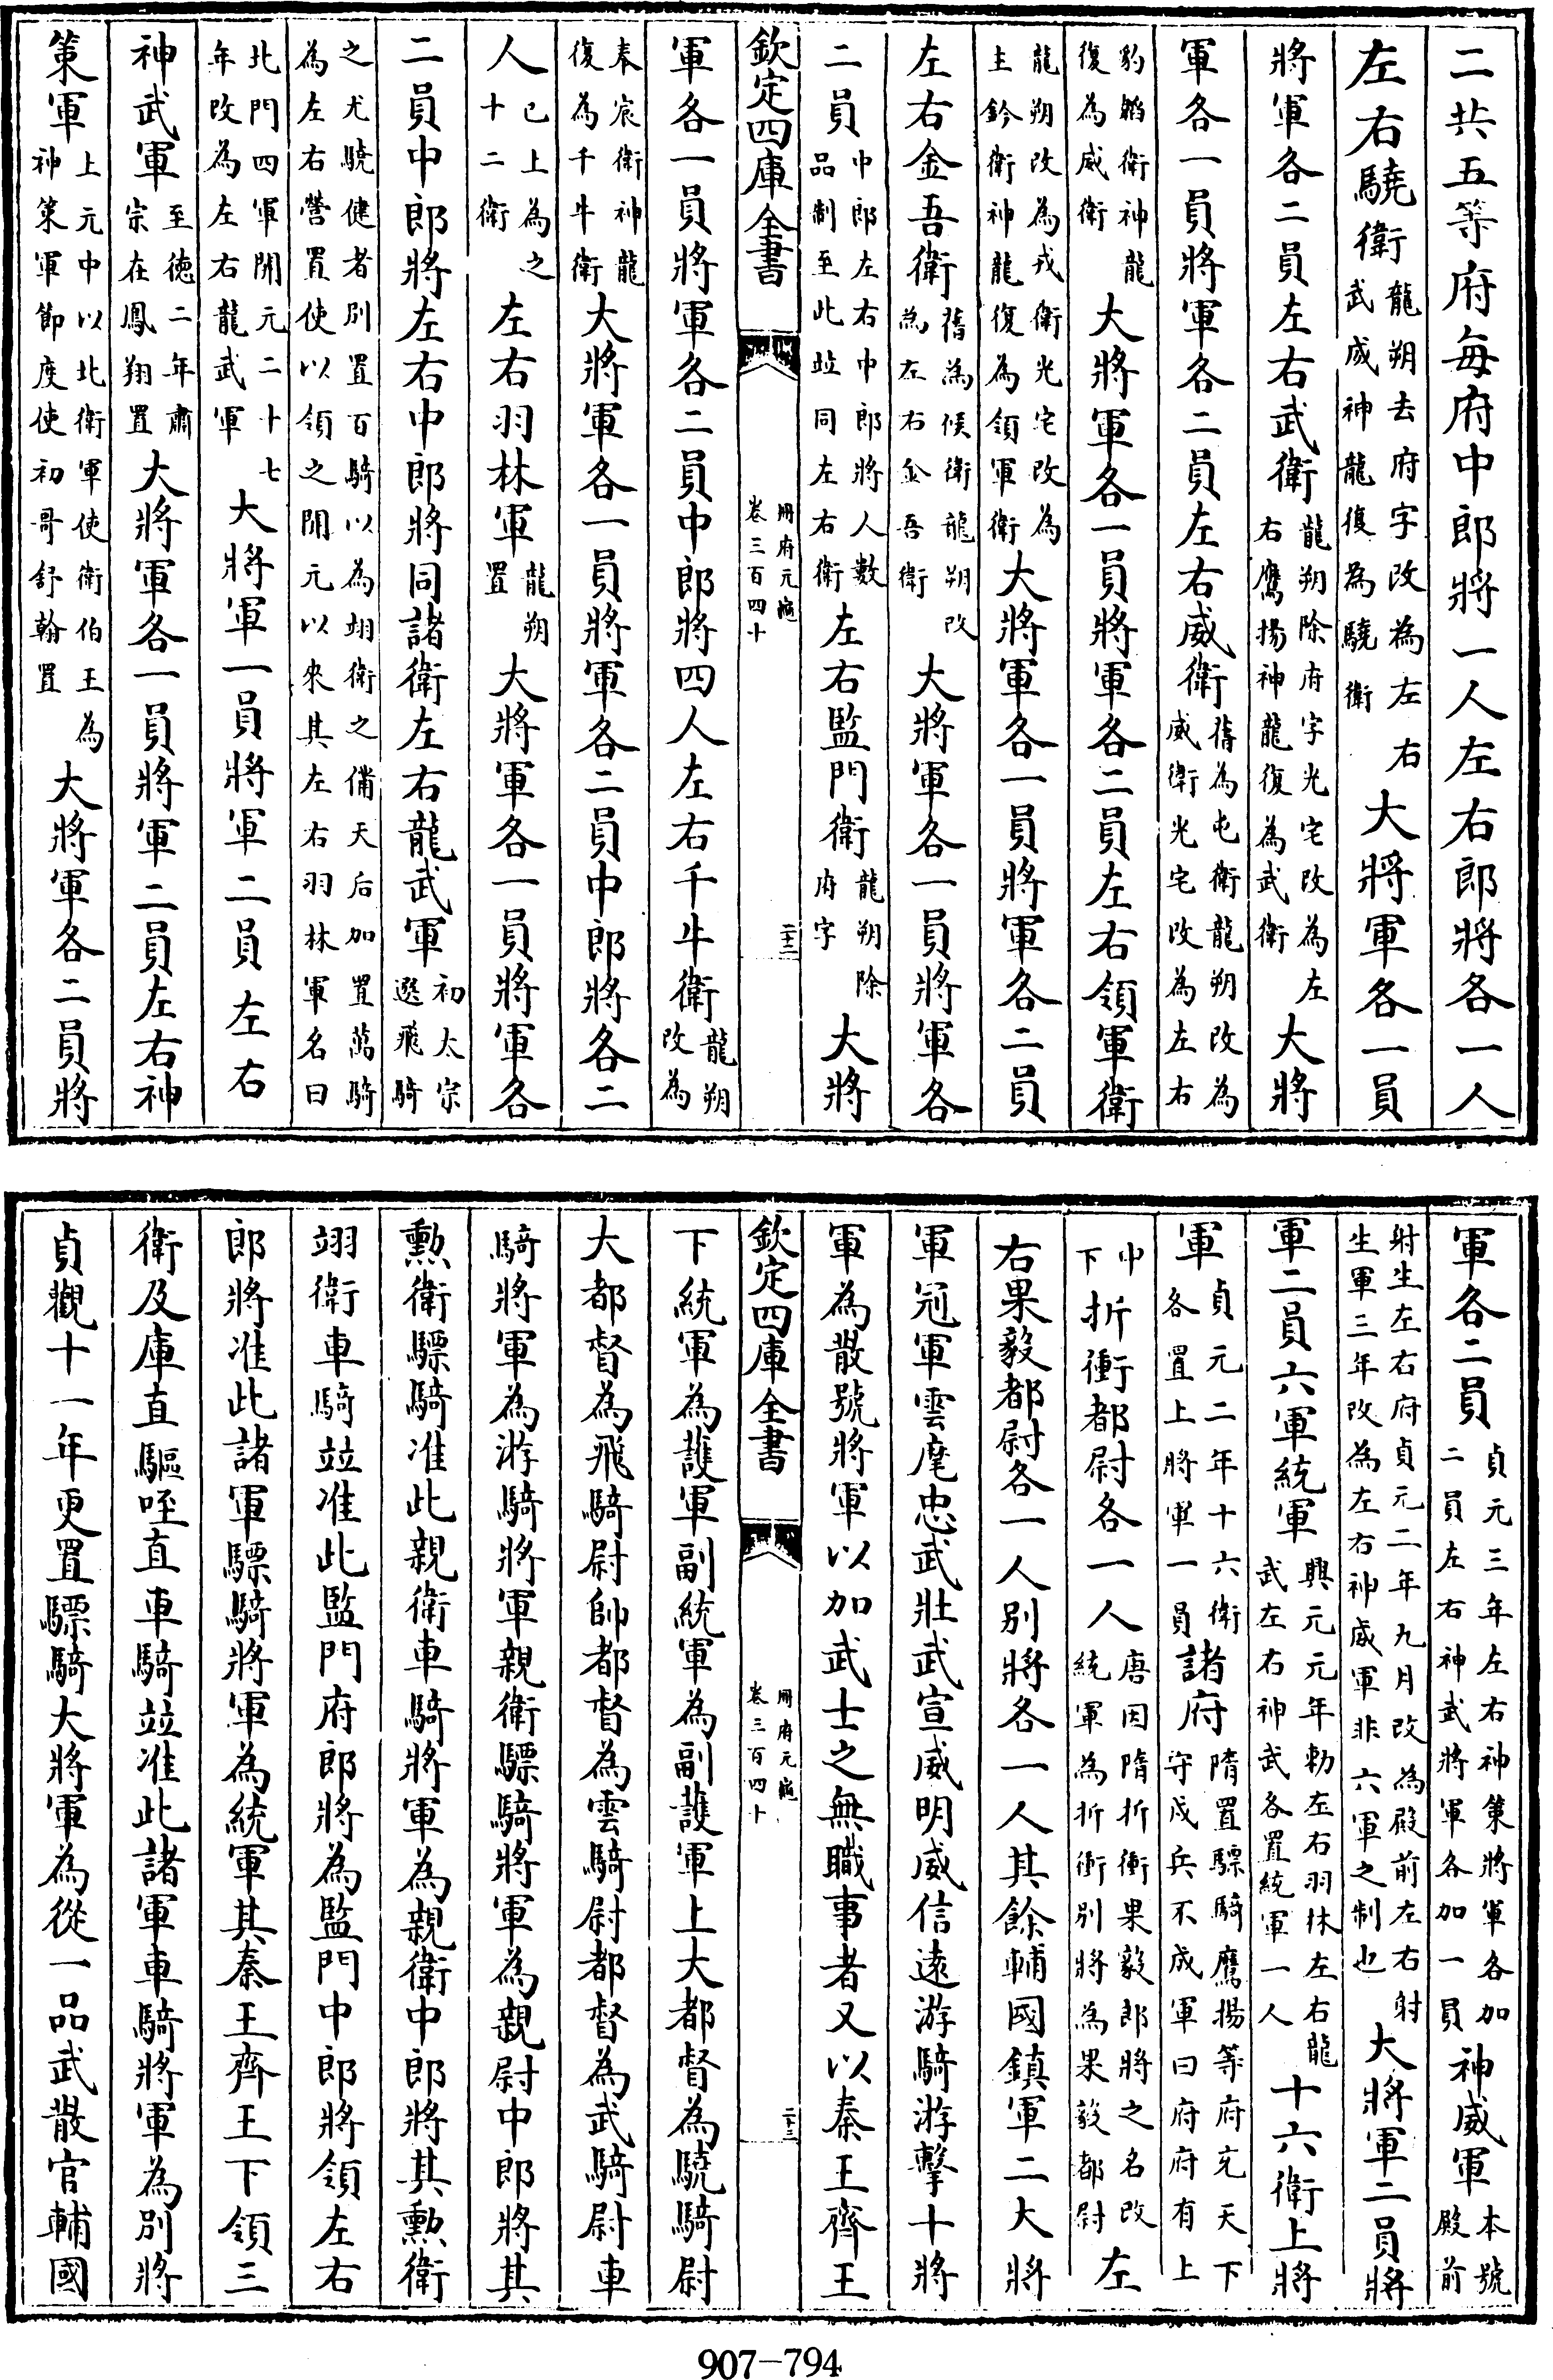 二共五等府每府中郎將一人左右郎將各一人
左右驍衛龍朔去府字改為左右武威神龍復為驍衛大將軍各一員
將軍各二員左右武衛龍朔除府字光宅改為左右鷹揚神龍復為武衛大將
軍各一員將軍各二員左右威衛舊為屯衛龍朔改為威衛光宅改為左右
豹韜衛神龍復為威衛大將軍各一員將軍各二員左右領軍衛
龍朔改為戎衛光宅改為玉鈐衛神龍復為領軍衛大將軍各一員將軍各二員
左右金吾衛舊為候衛龍朔改為左右金吾衛大將軍各一員將軍各
二員中郎左右中郎將人數品制至此竝同左右衛左右監門衛龍朔除府字大將
欽定四庫全書
冊府元龜
卷三百四十
二十二
軍各一員將軍各二員中郎將四人左右千牛衛龍朔改為
奉宸衛神龍復為千牛衛大將軍各一員將軍各二員中郎將各二
人已上為之十二衛左右羽林軍龍朔置大將軍各一員將軍各
二員中郎將左右中郎將同諸衛左右龍武軍初太宗選飛騎
之尤驍健者別置百騎以為翊衛之備天后加置萬騎為左右營置使以領之開元以來其左右羽林軍名曰
北門四軍開元二十七年改為左右龍武軍大將軍一員將軍二員左右
神武軍至德二年肅宗在鳳翔置大將軍各一員將軍二員左右神
策軍上元中以北衛軍使衛伯玉為神策軍節度使初哥舒翰置大將軍各二員將
軍各二員貞元三年左右神策將軍各加二員左右神武將軍各加一員神威軍本號殿前
射生左右府貞元二年九月改為殿前左右射生軍三年改為左右神威軍非六軍之制也大將軍二員將
軍二員六軍統軍興元元年勅左右羽林左右龍武左右神武各置統軍一人十六衛上將
軍貞元二年十六衛各置上將軍一員諸府隋置驃騎鷹揚等府充天下守戍兵不成軍曰府府有上
中下折衝都尉各一人唐因隋折衝果毅郎將之名改統軍為折衝別將為果毅都尉左
右果毅都尉各一人別將各一人其餘輔國鎮軍二大將
軍冠軍雲麾忠武壯武宣威明威信遠游騎游擊十將
軍為散號將軍以加武士之無職事者又以秦王齊王
欽定四庫全書
冊府元龜
卷三百四十
二十三
下統軍為護軍副統軍為副護軍上大都督為驍騎尉
大都督為飛騎尉帥都督為雲騎尉都督為武騎尉車
騎將軍為游騎將軍親衛驃騎將軍為親尉中郎將其
勲衛驃騎准此親衛車騎將軍為親衛中郎將其勲衛
翊衛車騎竝准此監門府郎將為監門中郎將領左右
郎將准此諸軍驃騎將軍為統軍其秦王齊王下領三
衛及庫直驅咥直車騎竝准此諸軍車騎將軍為別將
貞觀十一年更置驃騎大將軍為從一品武散官輔國
907-794